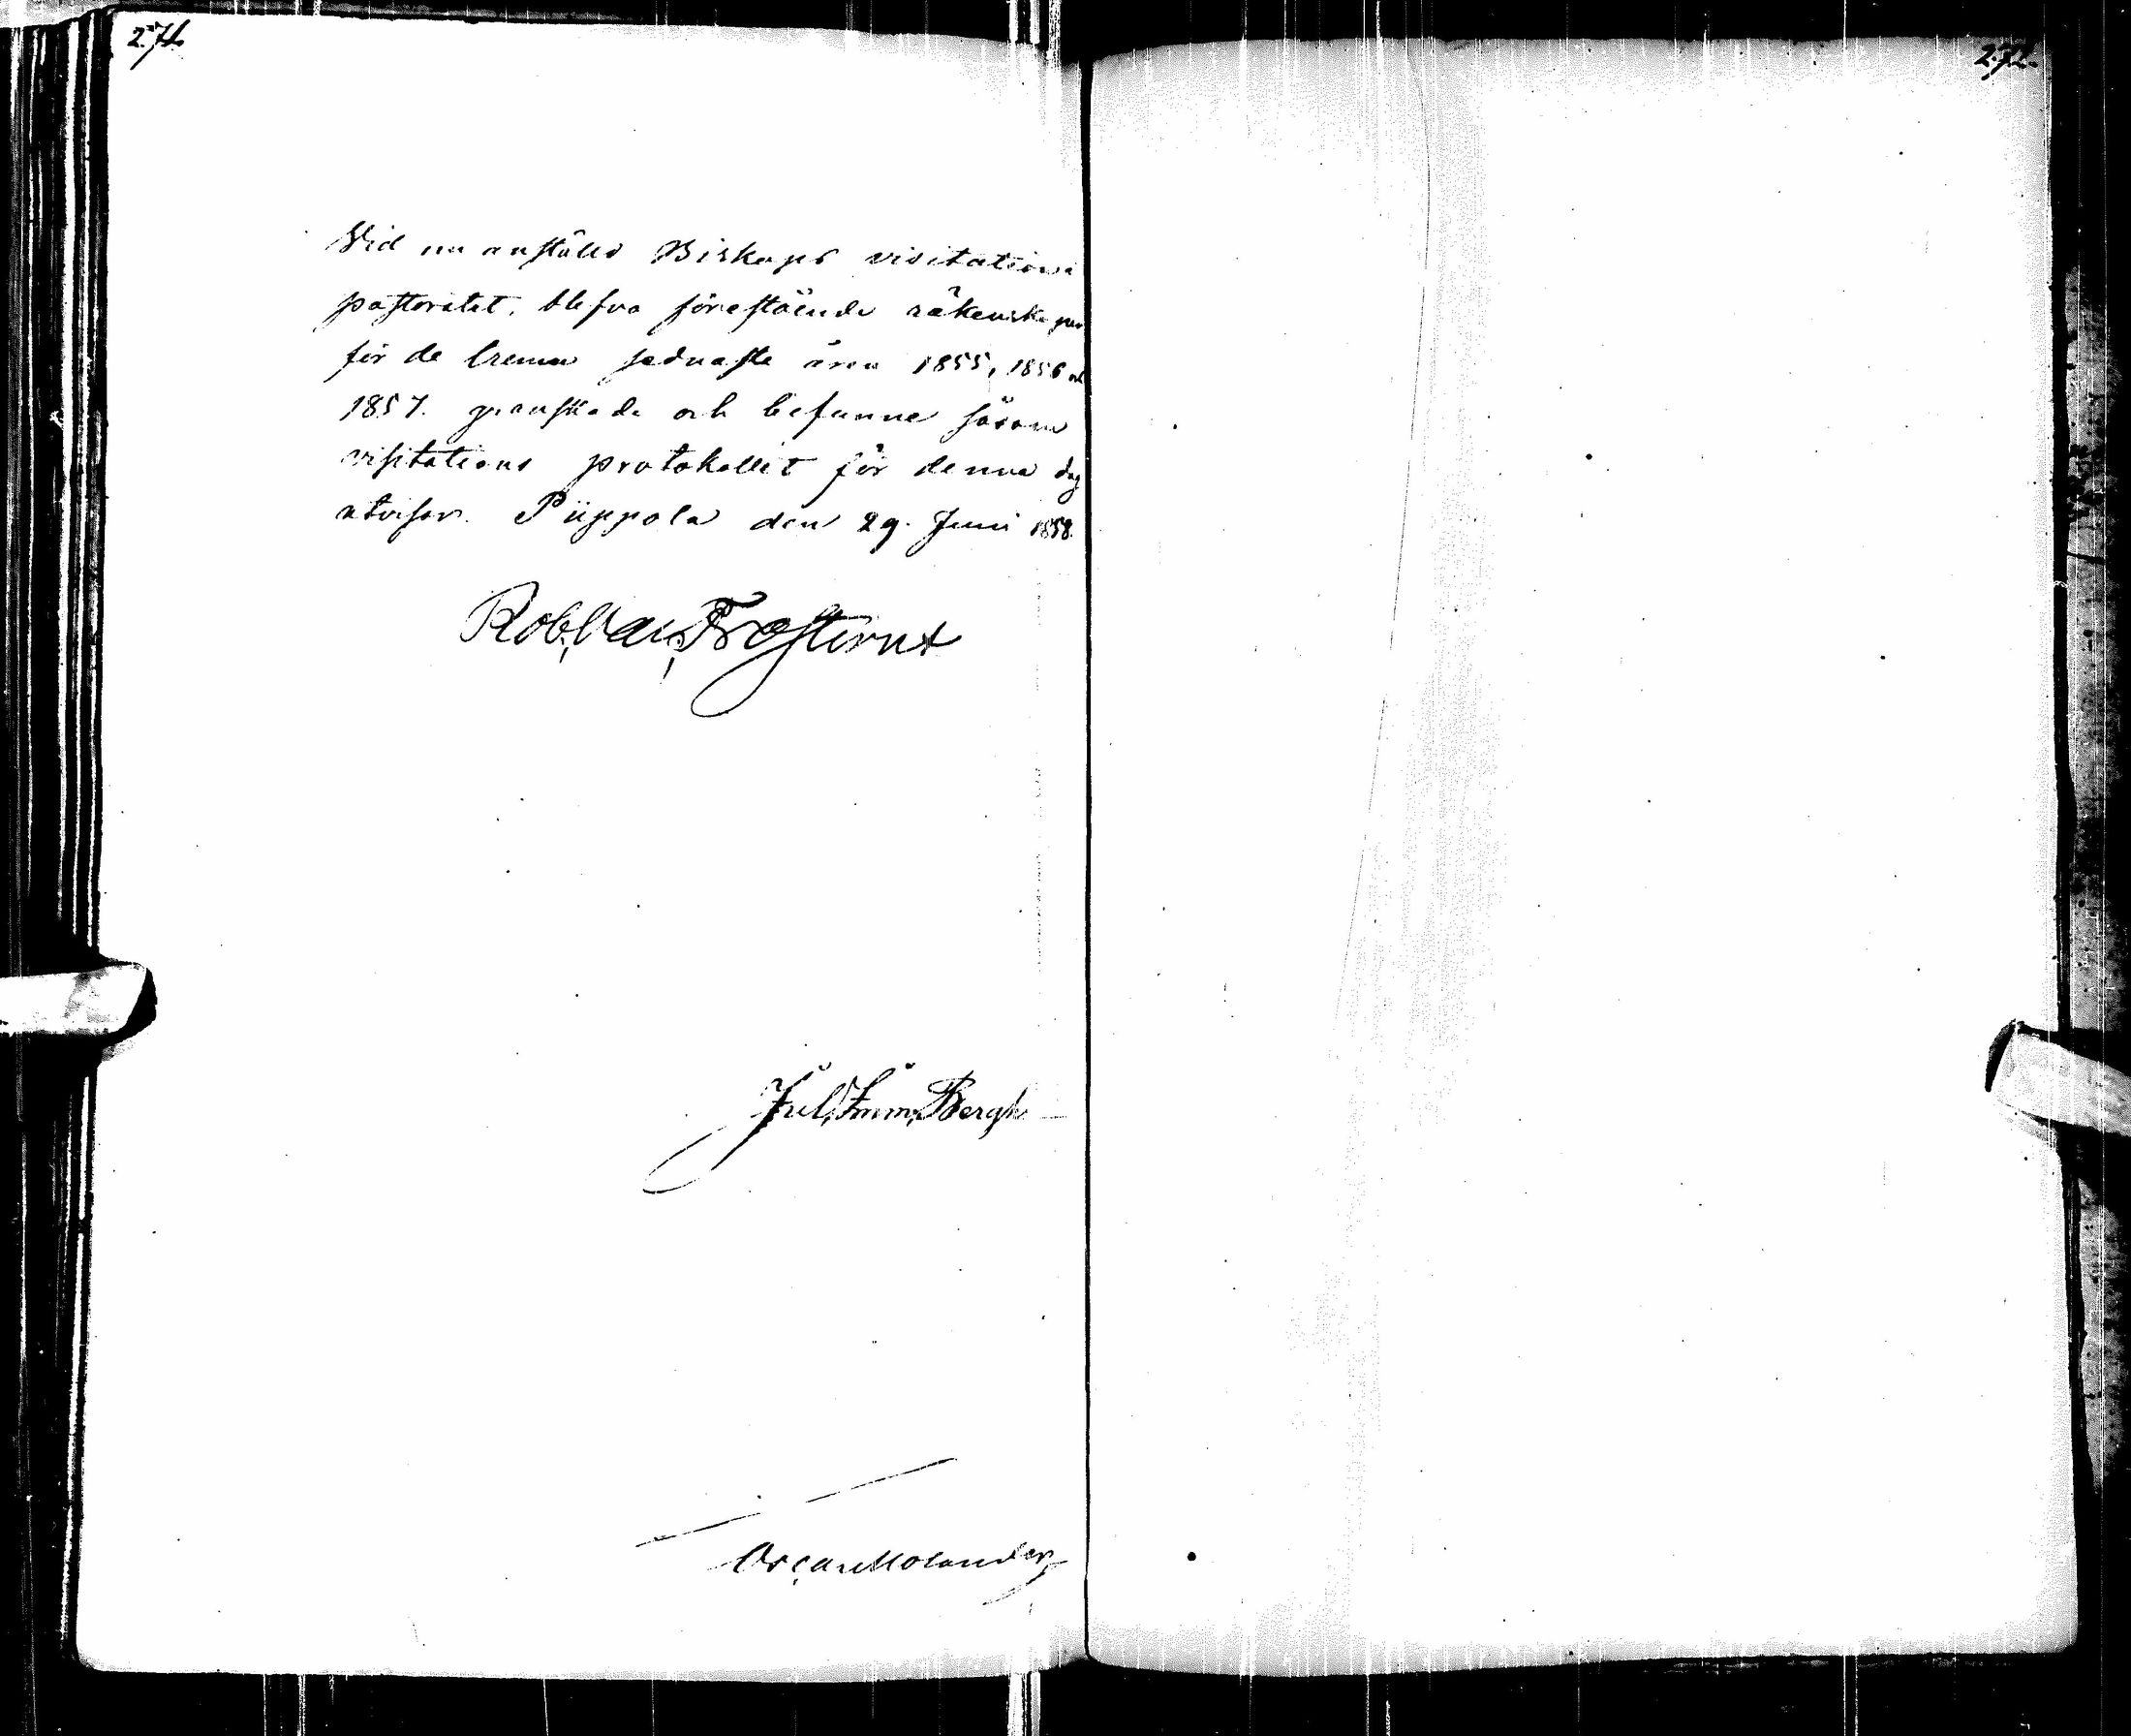 271.
272.
Vid nu anstäld Biskops visitation i
pastoratet, blefvo förestående räkenskaper
för de trenne sednaste åren 1855, 1856 och
1857. granskade och befunne såsom
visitations protokollet för denna dag
utvisar. Piippola den 29. Juni 1858.
Rob. Val. Frosterus
Jul. Imm. Bergh
Oscar Molander